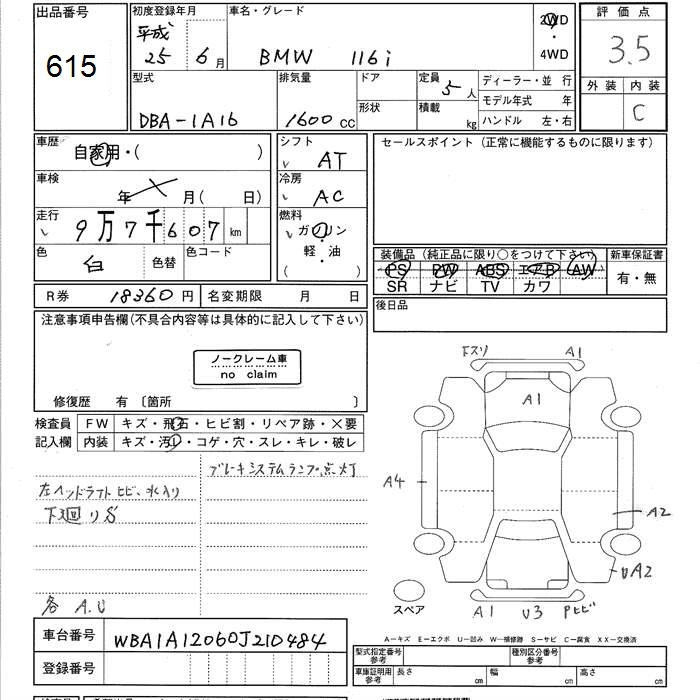 出品番号
615
初度登録年月
平成
25年 6月
車名・グレード
BMW 116i
2WD
4WD
評価点
3.5
外装 内装
C
型式
DBA-1A16
排気量
1600cc
ドア
形状
定員
5人
積載
kg
ディーラー・並 行
モデル年式 年
ハンドル 左・右
車歴
自家用・( )
シフト
AT
セールスポイント (正常に機能するものに限ります)
車検
年 月( 日)
冷房
AC
走行
9万7千607km
燃料
ガソリン
軽・油
( )
色
白
色替
色コード
装備品 (純正品に限り○をつけて下さい)
新車保証書
PS PW ABS エアB AW
SR ナビ TV カワ
有・無
R券 18360円
名変期限 月 日
後日品
注意事項申告欄(不具合内容等は具体的に記入して下さい)
ノークレーム車
no claim
修復歴 有 〔箇所 〕
検査員
記入欄
FW キズ・飛石・ヒビ割・リペア跡・×要
内装 キズ・汚れ・コゲ・穴・スレ・キレ・破レ
ブレーキシステムランプ点灯
左ヘッドライトヒビ、水入り
下廻りS
各 A.U
下スリ A1
A1
A4
A2
UA2
スペア
A1 U3 Pヒビ
A-キズ E-エクボ U-凹み W-補修跡 S-サビ C-腐食 XX-交換済
車台番号
WBA1A12060J210484
登録番号
型式指定番号
参考
種別区分番号
参考
車庫証明用
参考
長さ cm 幅 cm 高さ cm